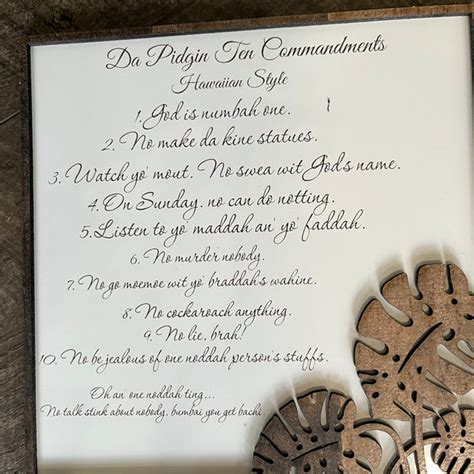 Da Pidgin Ten Commandments
Hawaiian Style
1. God is numbah one.
2. No make da kine statues.
3. Watch yo' mout. No swea wit God's name.
4. On Sunday, no can do notting.
5. Listen to yo' maddah an' yo' faddah.
6. No murder nobody.
7. No go moemoe wit yo' braddah's wahine.
8. No cockaroach anything.
9. No lie, brah!
10. No be jealous of one noddah person's stuffs.
Oh an' one noddah ting...
No talk stink about nobody, bumbai you get bachi.